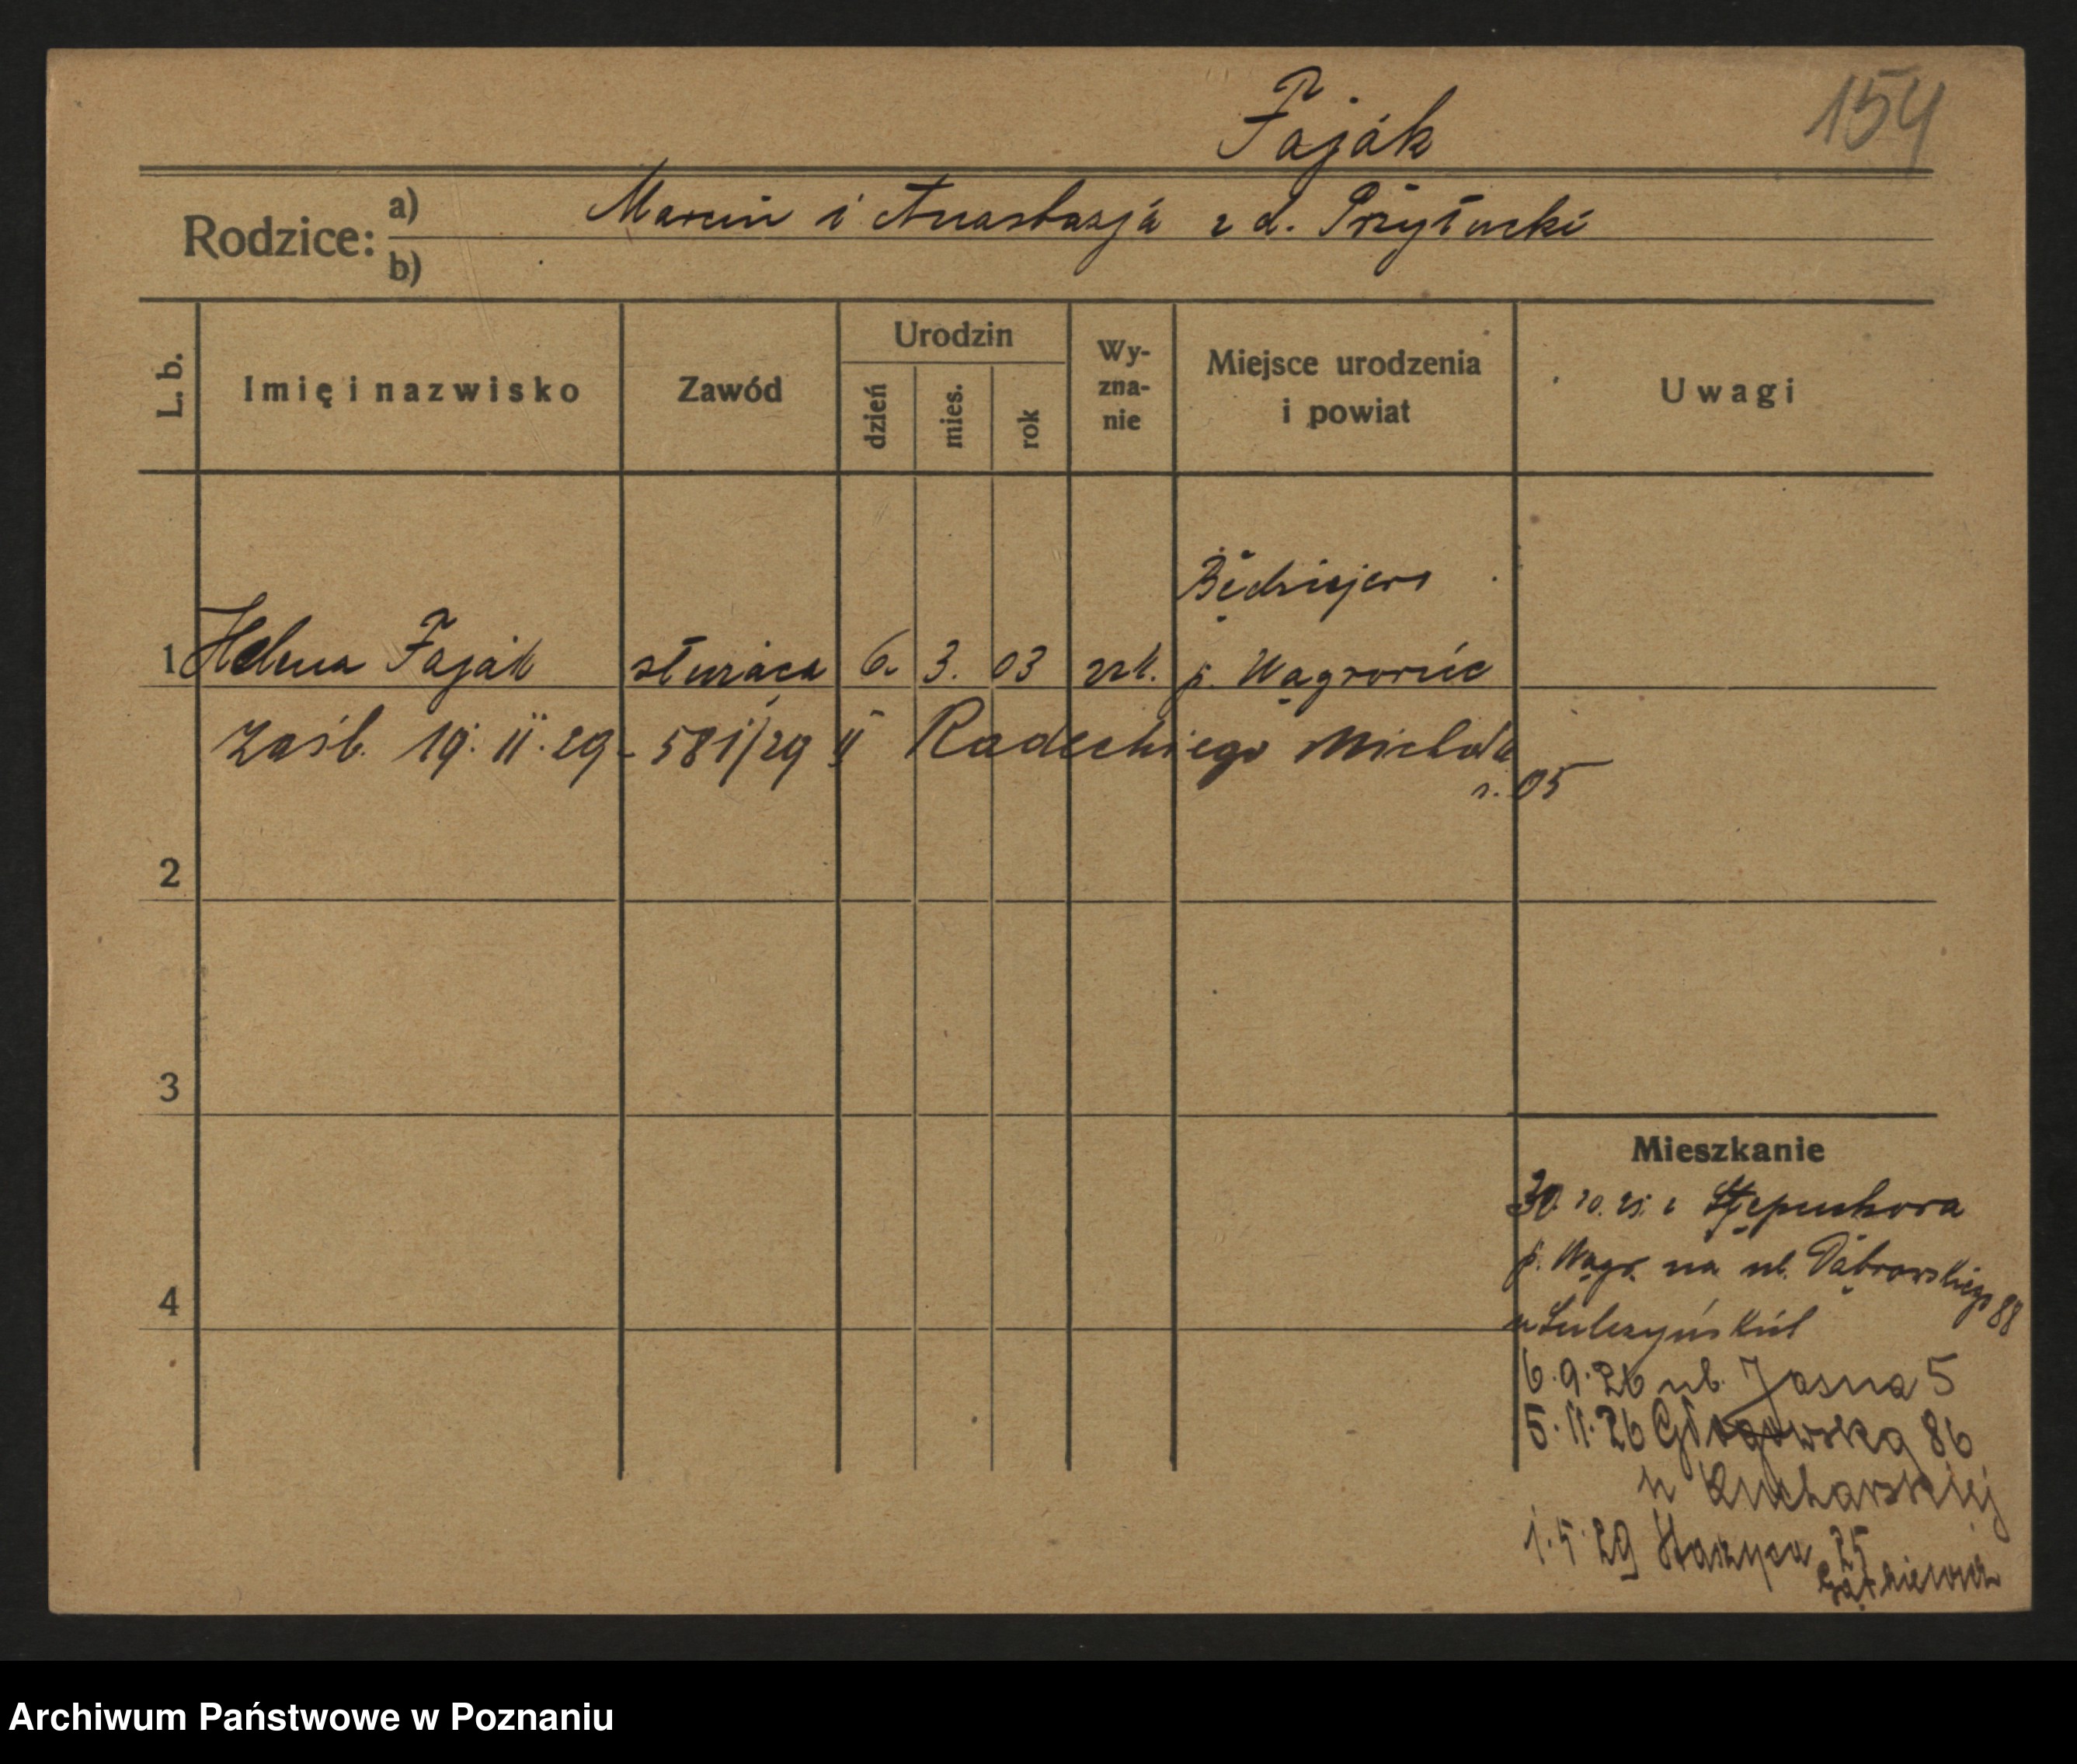 Fająk
154
Rodzice: a) Marcin i Anastazja z d. Przyłucki
b)
L. b.
Imię i nazwisko
Zawód
Urodzin
dzień
mies.
rok
Wy-
zna-
nie
Miejsce urodzenia
i powiat
Uwagi
1 Helena Fająk służąca 6. 3. 03 rzk.
p. Wągrowiec
zaśl. 19. II. 29 - 581/29 II Radeckiego Michała
r. 05
2
3
4
Mieszkanie
30. 10. 25. z Stępuchowa
p. Wągr. na ul. Dąbrowskiego 88
u
6.9.26 ul. Jasna 5
5.11.26 Głogowska 86
u Kucharskiej
1.5.29 Staszyca 25
Archiwum Państwowe w Poznaniu